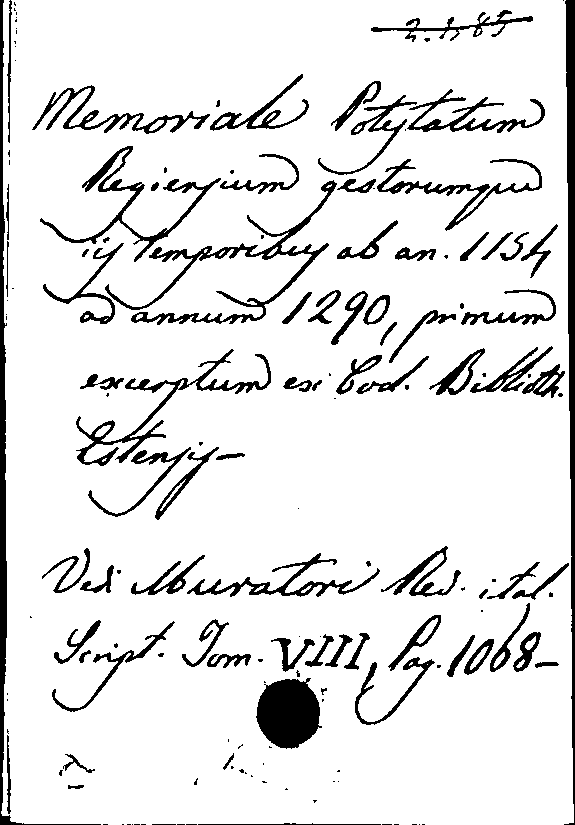 2.1.85
Memoriale Potestatum
Regiensium gestorumque
iis temporibus ab an. 1154
ad annum 1290, primum
excerptum ex Cod. Biblioth.
Estensis —
Vedi Muratori Rer. ital.
Script. Tom. VIII, Pag. 1068 —